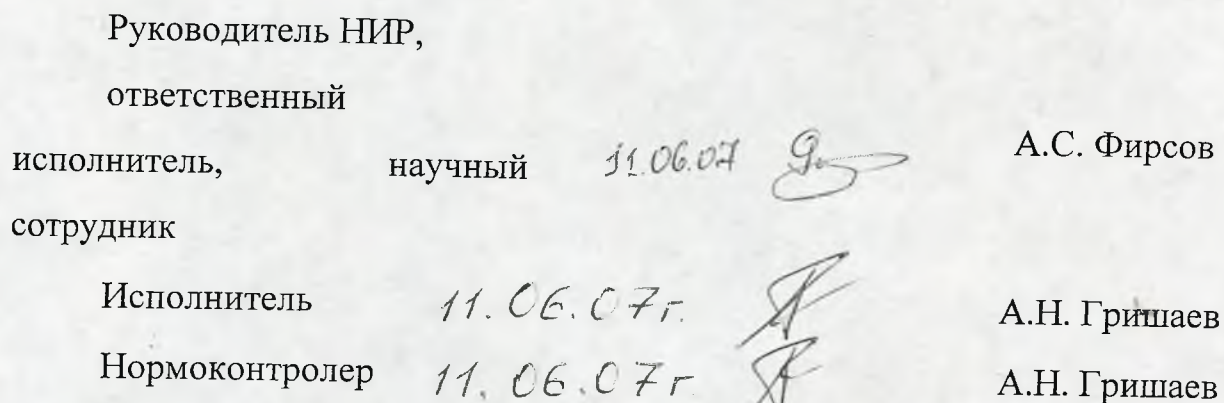 Руководитель НИР,
ответственный
исполнитель, научный 11.06.07 А.С. Фирсов
сотрудник
Исполнитель 11.06.07г. А.Н. Гришаев
Нормоконтролер 11.06.07г А.Н. Гришаев